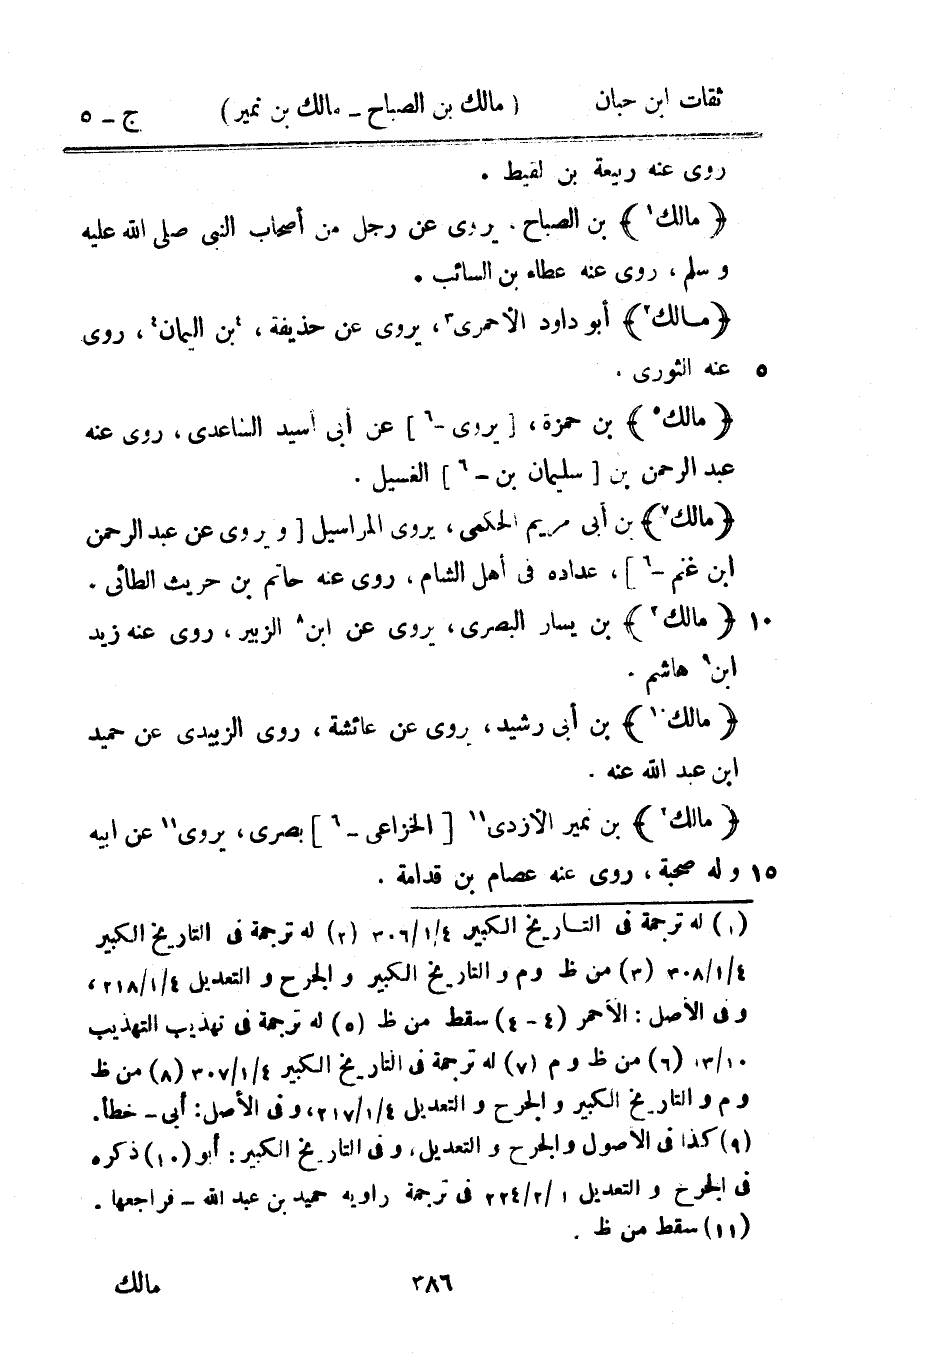 ثقات ابن حبان (مالك بن الصباح ـ مالك بن نمير) ج ـ ٥
روى عنه ربيعة بن لقيط .
﴿ مالك١ ﴾ بن الصباح . يروى عن رجل من أصحاب النبى صلى الله عليه
و سلم ، روى عنه عطاء بن السائب .
﴿مـالك٢﴾ أبو داود الأحمرى٣، يروى عن حذيفة ، ٤بن اليمان٤ ، روى
٥ عنه الثورى .
﴿ مالك٥ ﴾ بن حمزة ، [ يروى -٦ ] عن أبى أسيد الساعدى ، روى عنه
عبد الرحمن بن [ سليمان بن - ٦ ] الغسيل .
﴿مالك٧﴾ بن أبى مريم الحكمى ، يروى المراسيل [ و يروى عن عبد الرحمن
ابن غنم -٦ ] ، عداده فى أهل الشام ، روى عنه حاتم بن حريث الطائى .
١٠ ﴿ مالك٢ ﴾ بن يسار البصرى ، يروى عن ابن٨ الزبير ، روى عنه زيد
ابن٩ هاشم .
﴿ مالك١٠ ﴾ بن أبى رشيد ، يروى عن عائشة ، روى الزبيدى عن حميد
ابن عبد الله عنه .
﴿ مالك٢ ﴾ بن نمير الأزدى١١ [ الخزاعى - ٦ ] بصرى ، يروى١١ عن ابيه
١٥ و له صحبة ، روى عنه عصام بن قدامة .
(١) له ترجمة فى التـاريخ الكبير ٤/١/٣٠٦ (٢) له ترجمة فى التاريخ الكبير
٤/١/٣٠٨ (٣) من ظ و م و التاريخ الكبير و الجرح و التعديل ٤/١/٢١٨ ،
و فى الأصل : الأحمر (٤ - ٤) سقط من ظ (٥) له ترجمة فى تهذيب التهذيب
١٠/١٣ (٦) من ظ و م (٧) له ترجمة فى التاريخ الكبير ٤/١/٣٠٧ (٨) من ظ
و م و التاريخ الكبير و الجرح و التعديل ٤/١/٢١٧، و فى الأصل : أبى - خطأ.
(٩) كذا فى الأصول و الجرح و التعديل ، و فى التاريخ الكبير : أبو (١٠) ذكره
فى الجرح و التعديل ١/٢/٢٢٤ فى ترجمة راويه حميد بن عبد الله - فراجعها .
(١١) سقط من ظ .
٣٨٦ مالك